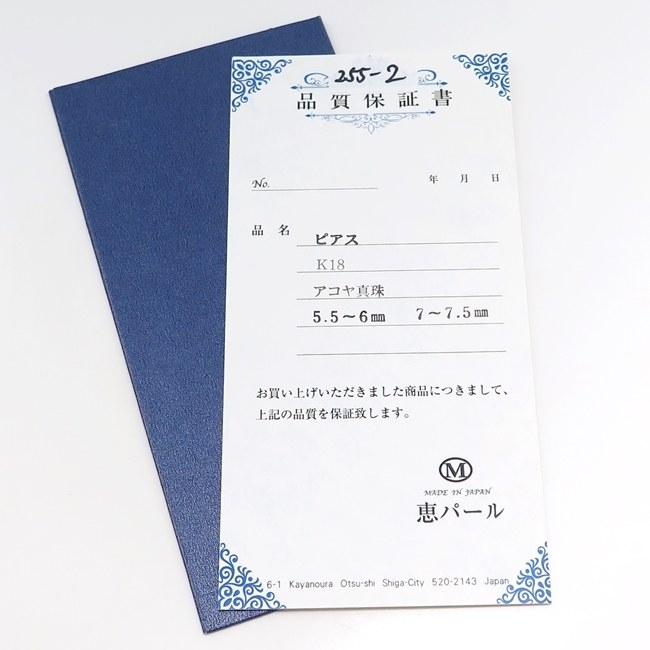 255-2
品質保証書
No.
年 月 日
品 名 ピアス
K18
アコヤ真珠
5.5～6㎜ 7～7.5㎜
お買い上げいただきました商品につきまして、
上記の品質を保証致します。
M
MADE IN JAPAN
恵パール
6-1 Kayanoura Otsu-shi Shiga-City 520-2143 Japan